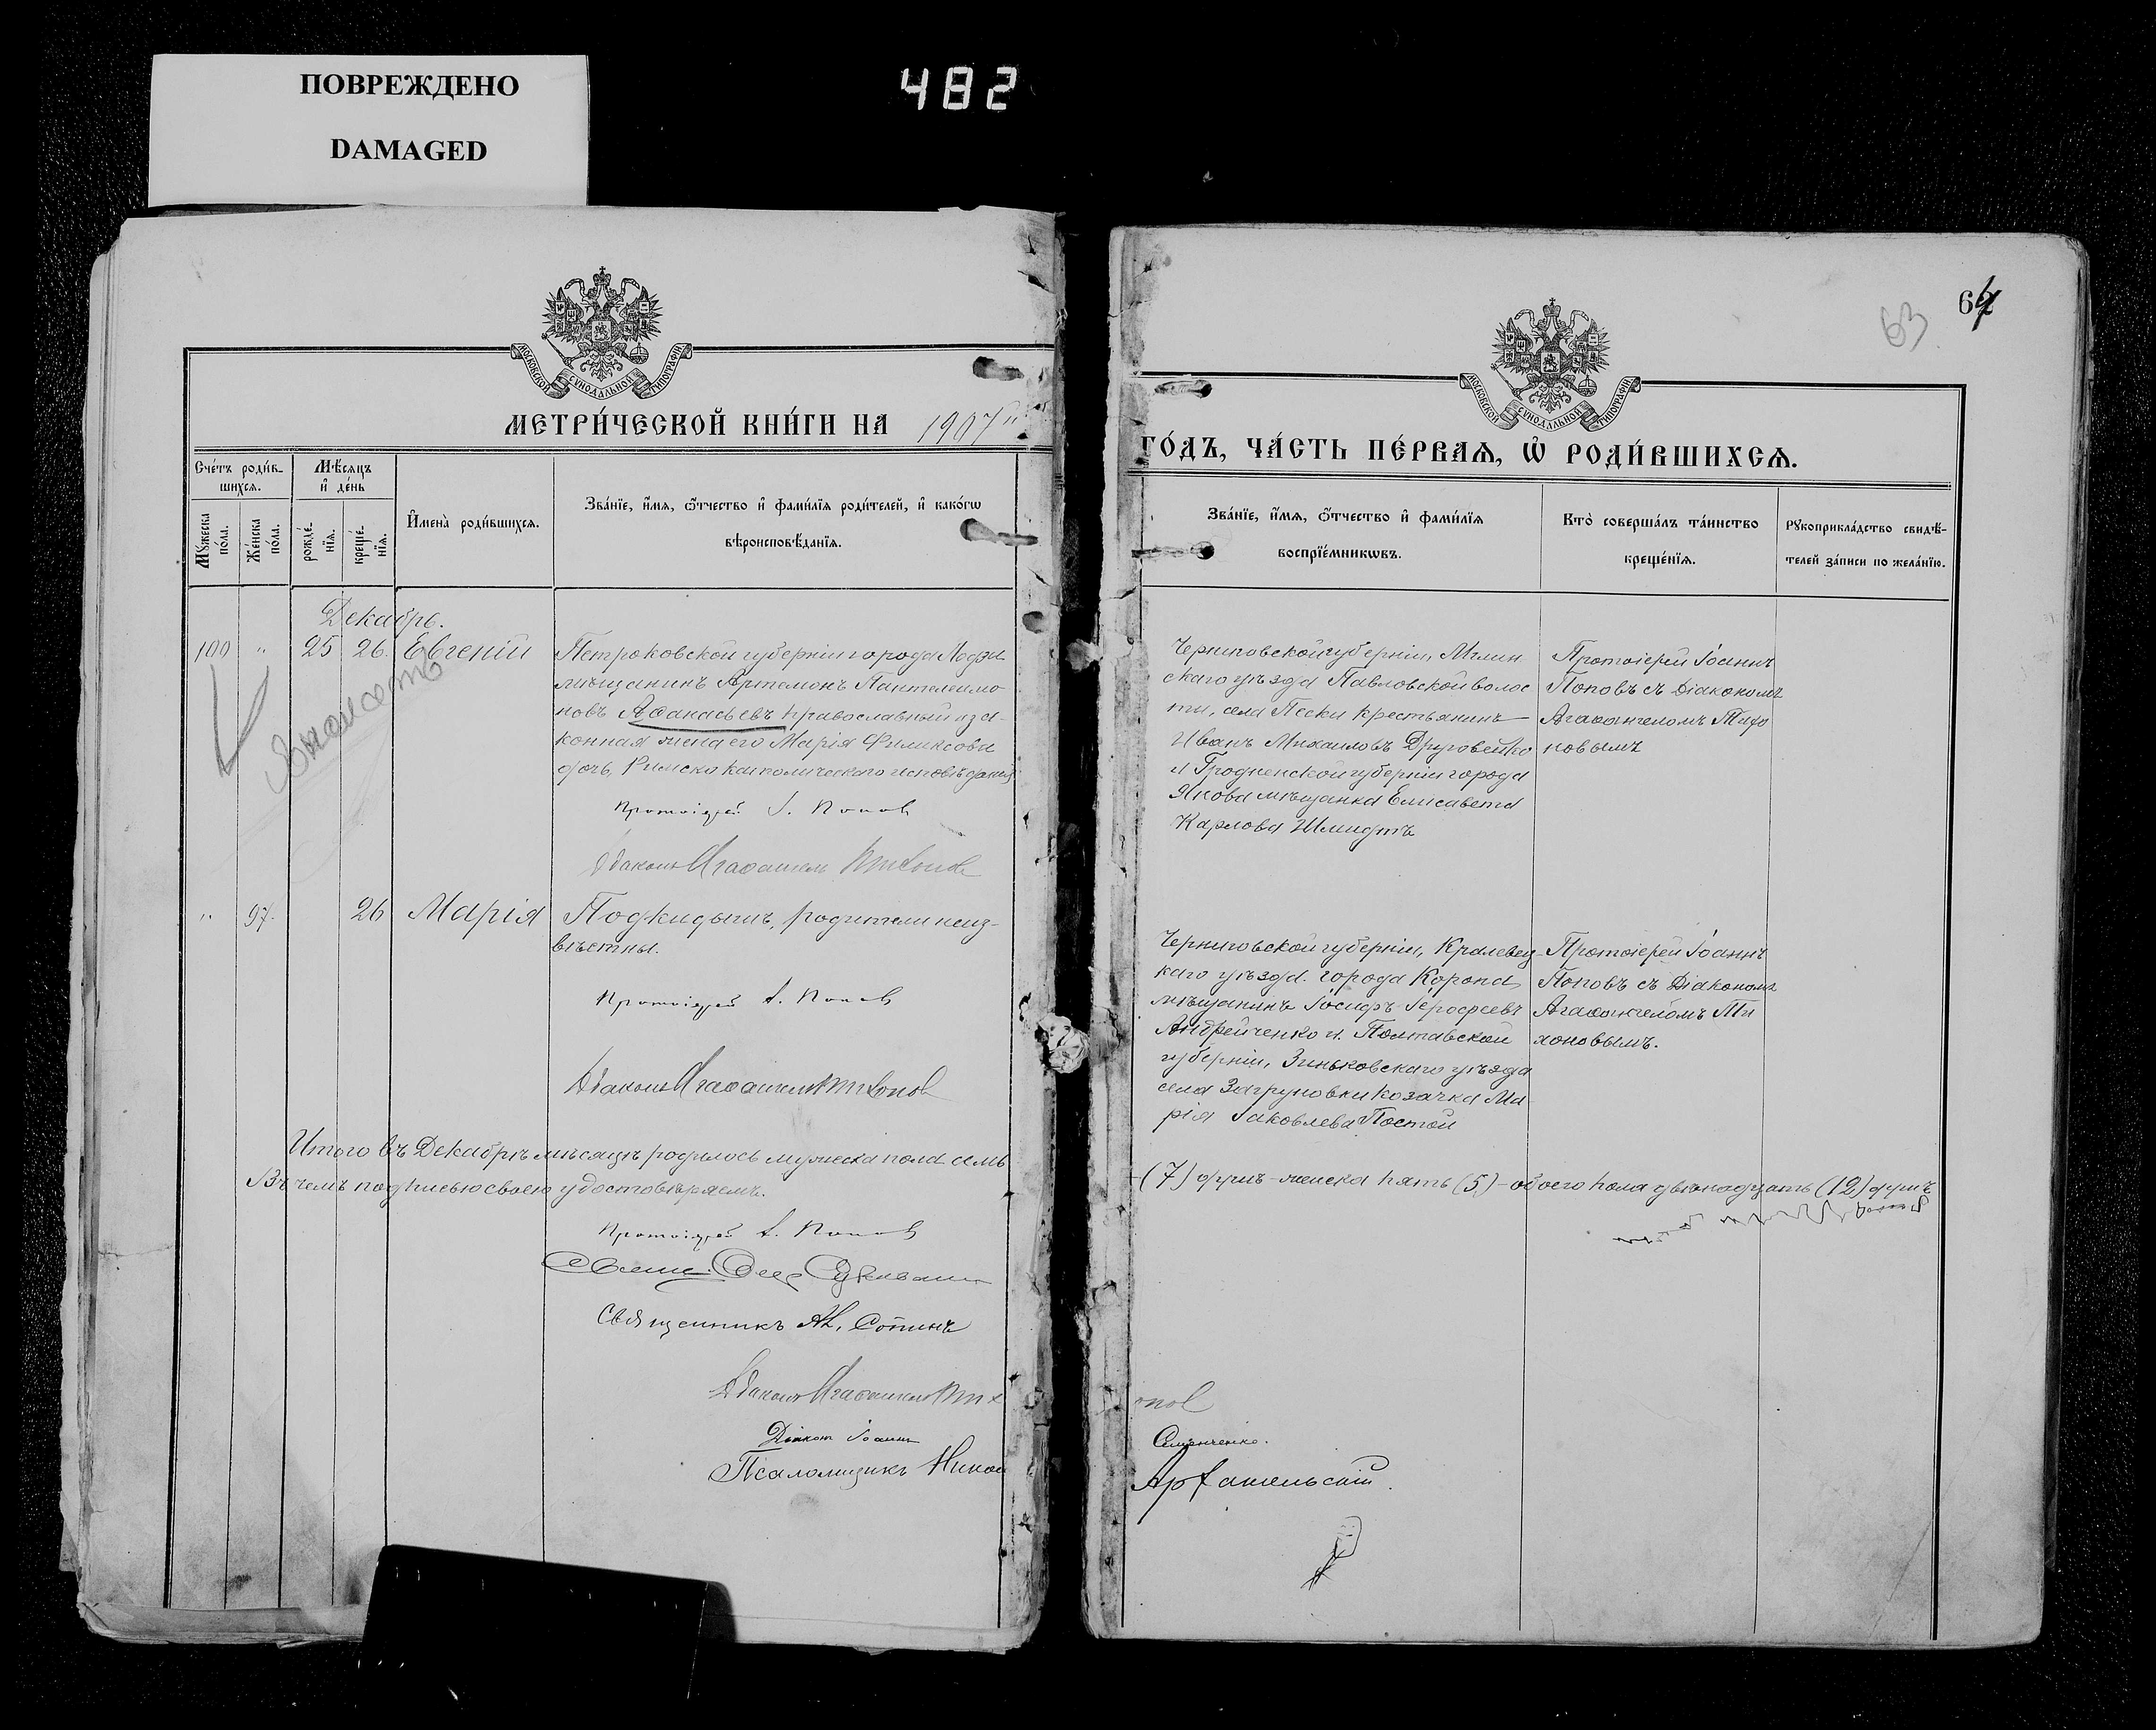 ПОВРЕЖДЕНО
DAMAGED
482
63
64
МОСКОВСКОЙ СѴНОДАЛЬНОЙ ТИПОГРАФІИ
МОСКОВСКОЙ СѴНОДАЛЬНОЙ ТИПОГРАФІИ
МЕТРИ́ЧЕСКОЙ КНИ́ГИ НА 1907
ГО́ДЪ, ЧА́СТЬ ПЕ́РВАѦ, Ѡ РОДИ́ВШИХСѦ.
Сче́тъ роди́в-
шихсѧ.
Мѣ́сѧцъ
и҆ де́нь
Мꙋ́жеска
по́ла.
Же́нска
по́ла.
рожде́-
нїѧ.
креще́-
нїѧ.
И҆мена̀ роди́вшихсѧ.
Зва́нїе, и҆́мѧ, ѻ҆́тчество и҆ фами́лїѧ роди́телей, и҆ како́гѡ
вѣроисповѣ́данїѧ.
Зва́нїе, и҆́мѧ, ѻ҆́тчество и҆ фами́лїѧ
воспрїе́мникѡвъ.
Кто̀ соверша́лъ та́инство
креще́нїѧ.
Рꙋкоприкла́дство свидѣ́-
телей за́писи по жела́нїю.
Декабрь.
100 " 25 26. Евгеній
Петроковской губерніи города Лодзи
мѣщанинъ Артемонъ Пантелеимо-
новъ Аѳанасьевъ православный и за-
конная жена его Марія Филиксова
дочь, Римско католическаго исповѣданія
Протоіерей І. Попов
Діаконъ Агаѳангелъ Тихонов
Черниговской губерніи, Мглин
скаго уѣзда Павловской волос
ти, села Пески крестьянинъ
Иванъ Михаиловъ Друговейко
и Гродненской губерніи города
Якова мѣщанка Елисавета
Карлова Шмидтъ
Протоіерей Іоаннъ
Поповъ съ Діакономъ
Агаѳангеломъ Тихо
новымъ
" 97. 26 Марія
Подкидышъ, родители неиз-
вѣстны.
Протоіерей І. Попов
Діаконъ Агаѳангелъ Тихонов
Черниговской губерніи, Кролевец-
каго уѣзда города Коропа
мѣщанинъ Іосифъ Іероѳеевъ
Андрейченко и Полтавской
губерніи, Зиньковскаго уѣзда
села Загруновки козачка Ма-
рія Іаковлева Постой
Протоіерей Іоаннъ
Поповъ съ Діакономъ
Агаѳангеломъ Ти
хоновымъ.
Итого въ Декабрѣ мѣсяцѣ родилось мужеска пола семь
(7) душъ - женска пять (5) - обоего пола двѣнадцать (12) душъ
Въ чемъ подписью своею удостовѣряемъ.
Протоіерей І. Попов
Священникъ Ал. Сопинъ
Діаконъ Агаѳангелъ Тихонов
Діаконъ Іоаннъ Семенченко.
Псаломщикъ Никол Архангельскій.